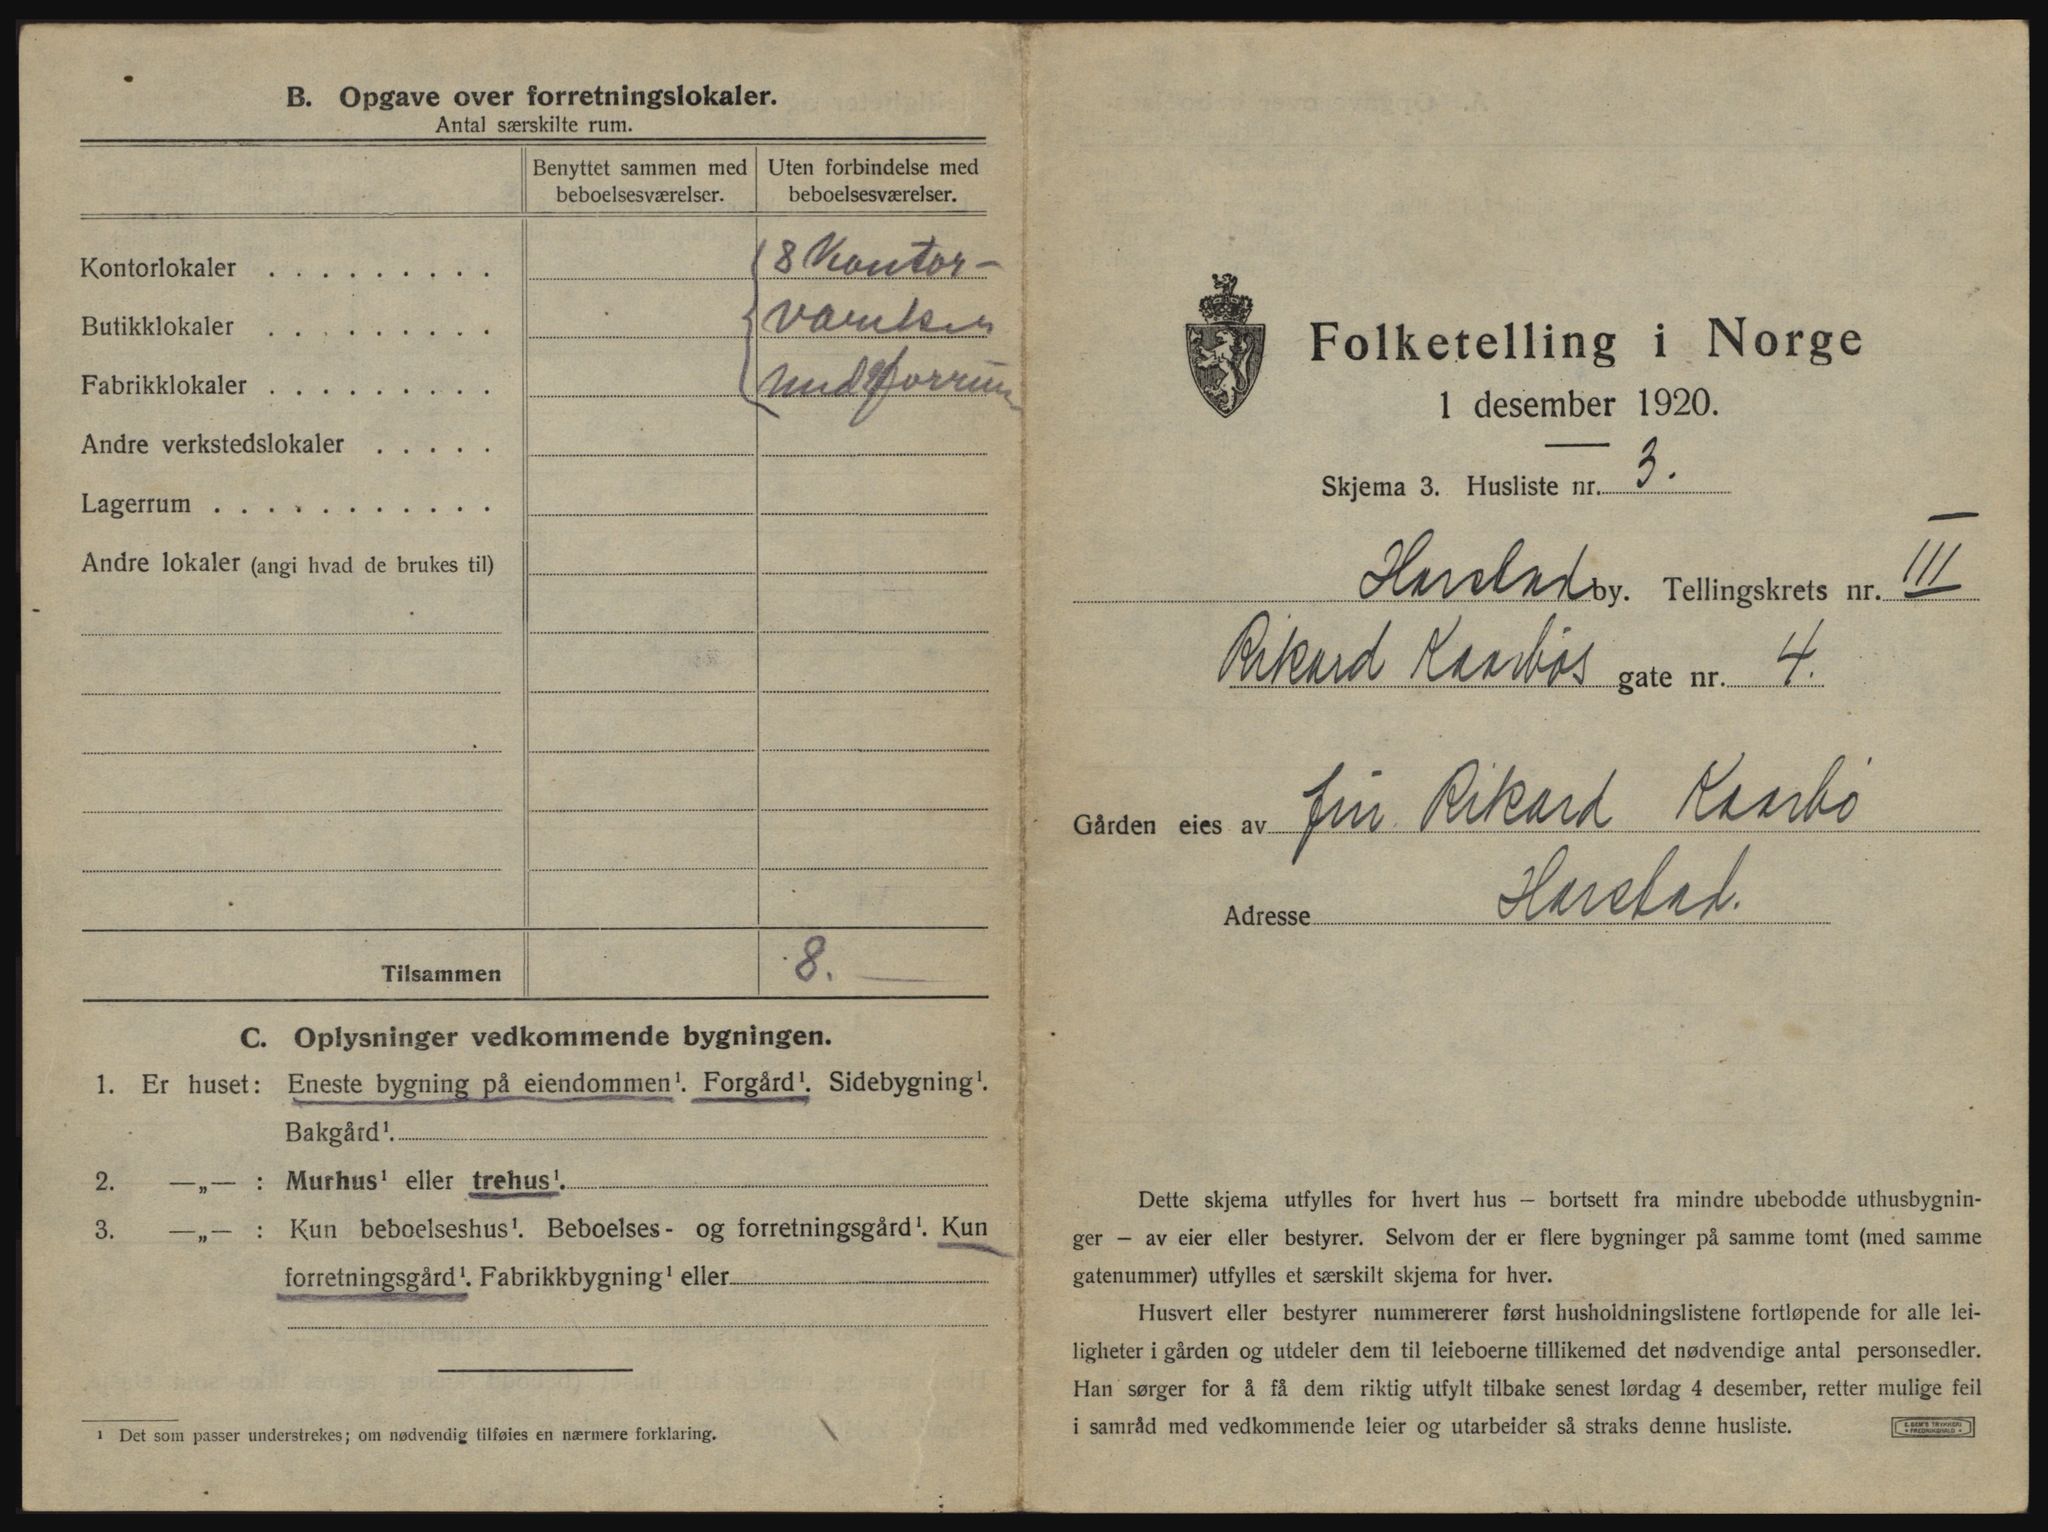 B. Opgave over forretningslokaler.
Antal særskilte rum.
Benyttet sammen med beboelsesværelser.
Uten forbindelse med beboelsesværelser.
Kontorlokaler . . . . . . . . . 8 Kontor-
Butikklokaler . . . . . . . . .
Fabrikklokaler . . . . . . . . .
Andre verkstedslokaler . . . . .
Lagerrum . . . . . . . . . . .
Andre lokaler (angi hvad de brukes til)
Tilsammen 8.
C. Oplysninger vedkommende bygningen.
1. Er huset: Eneste bygning på eiendommen¹. Forgård¹. Sidebygning¹.
Bakgård¹.
2. —„— : Murhus¹ eller trehus¹.
3. —„— : Kun beboelseshus¹. Beboelses- og forretningsgård¹. Kun
forretningsgård¹. Fabrikkbygning¹ eller
¹ Det som passer understrekes; om nødvendig tilføies en nærmere forklaring.
Folketelling i Norge
1 desember 1920.
Skjema 3. Husliste nr. 3.
Harstad by. Tellingskrets nr. III
Rikard Kaarbøs gate nr. 4.
Gården eies av fru Rikard Kaarbø
Adresse Harstad.
Dette skjema utfylles for hvert hus – bortsett fra mindre ubebodde uthusbygnin-
ger – av eier eller bestyrer. Selvom der er flere bygninger på samme tomt (med samme
gatenummer) utfylles et særskilt skjema for hver.
Husvert eller bestyrer nummererer først husholdningslistene fortløpende for alle lei-
ligheter i gården og utdeler dem til leieboerne tillikemed det nødvendige antal personsedler.
Han sørger for å få dem riktig utfylt tilbake senest lørdag 4 desember, retter mulige feil
i samråd med vedkommende leier og utarbeider så straks denne husliste.